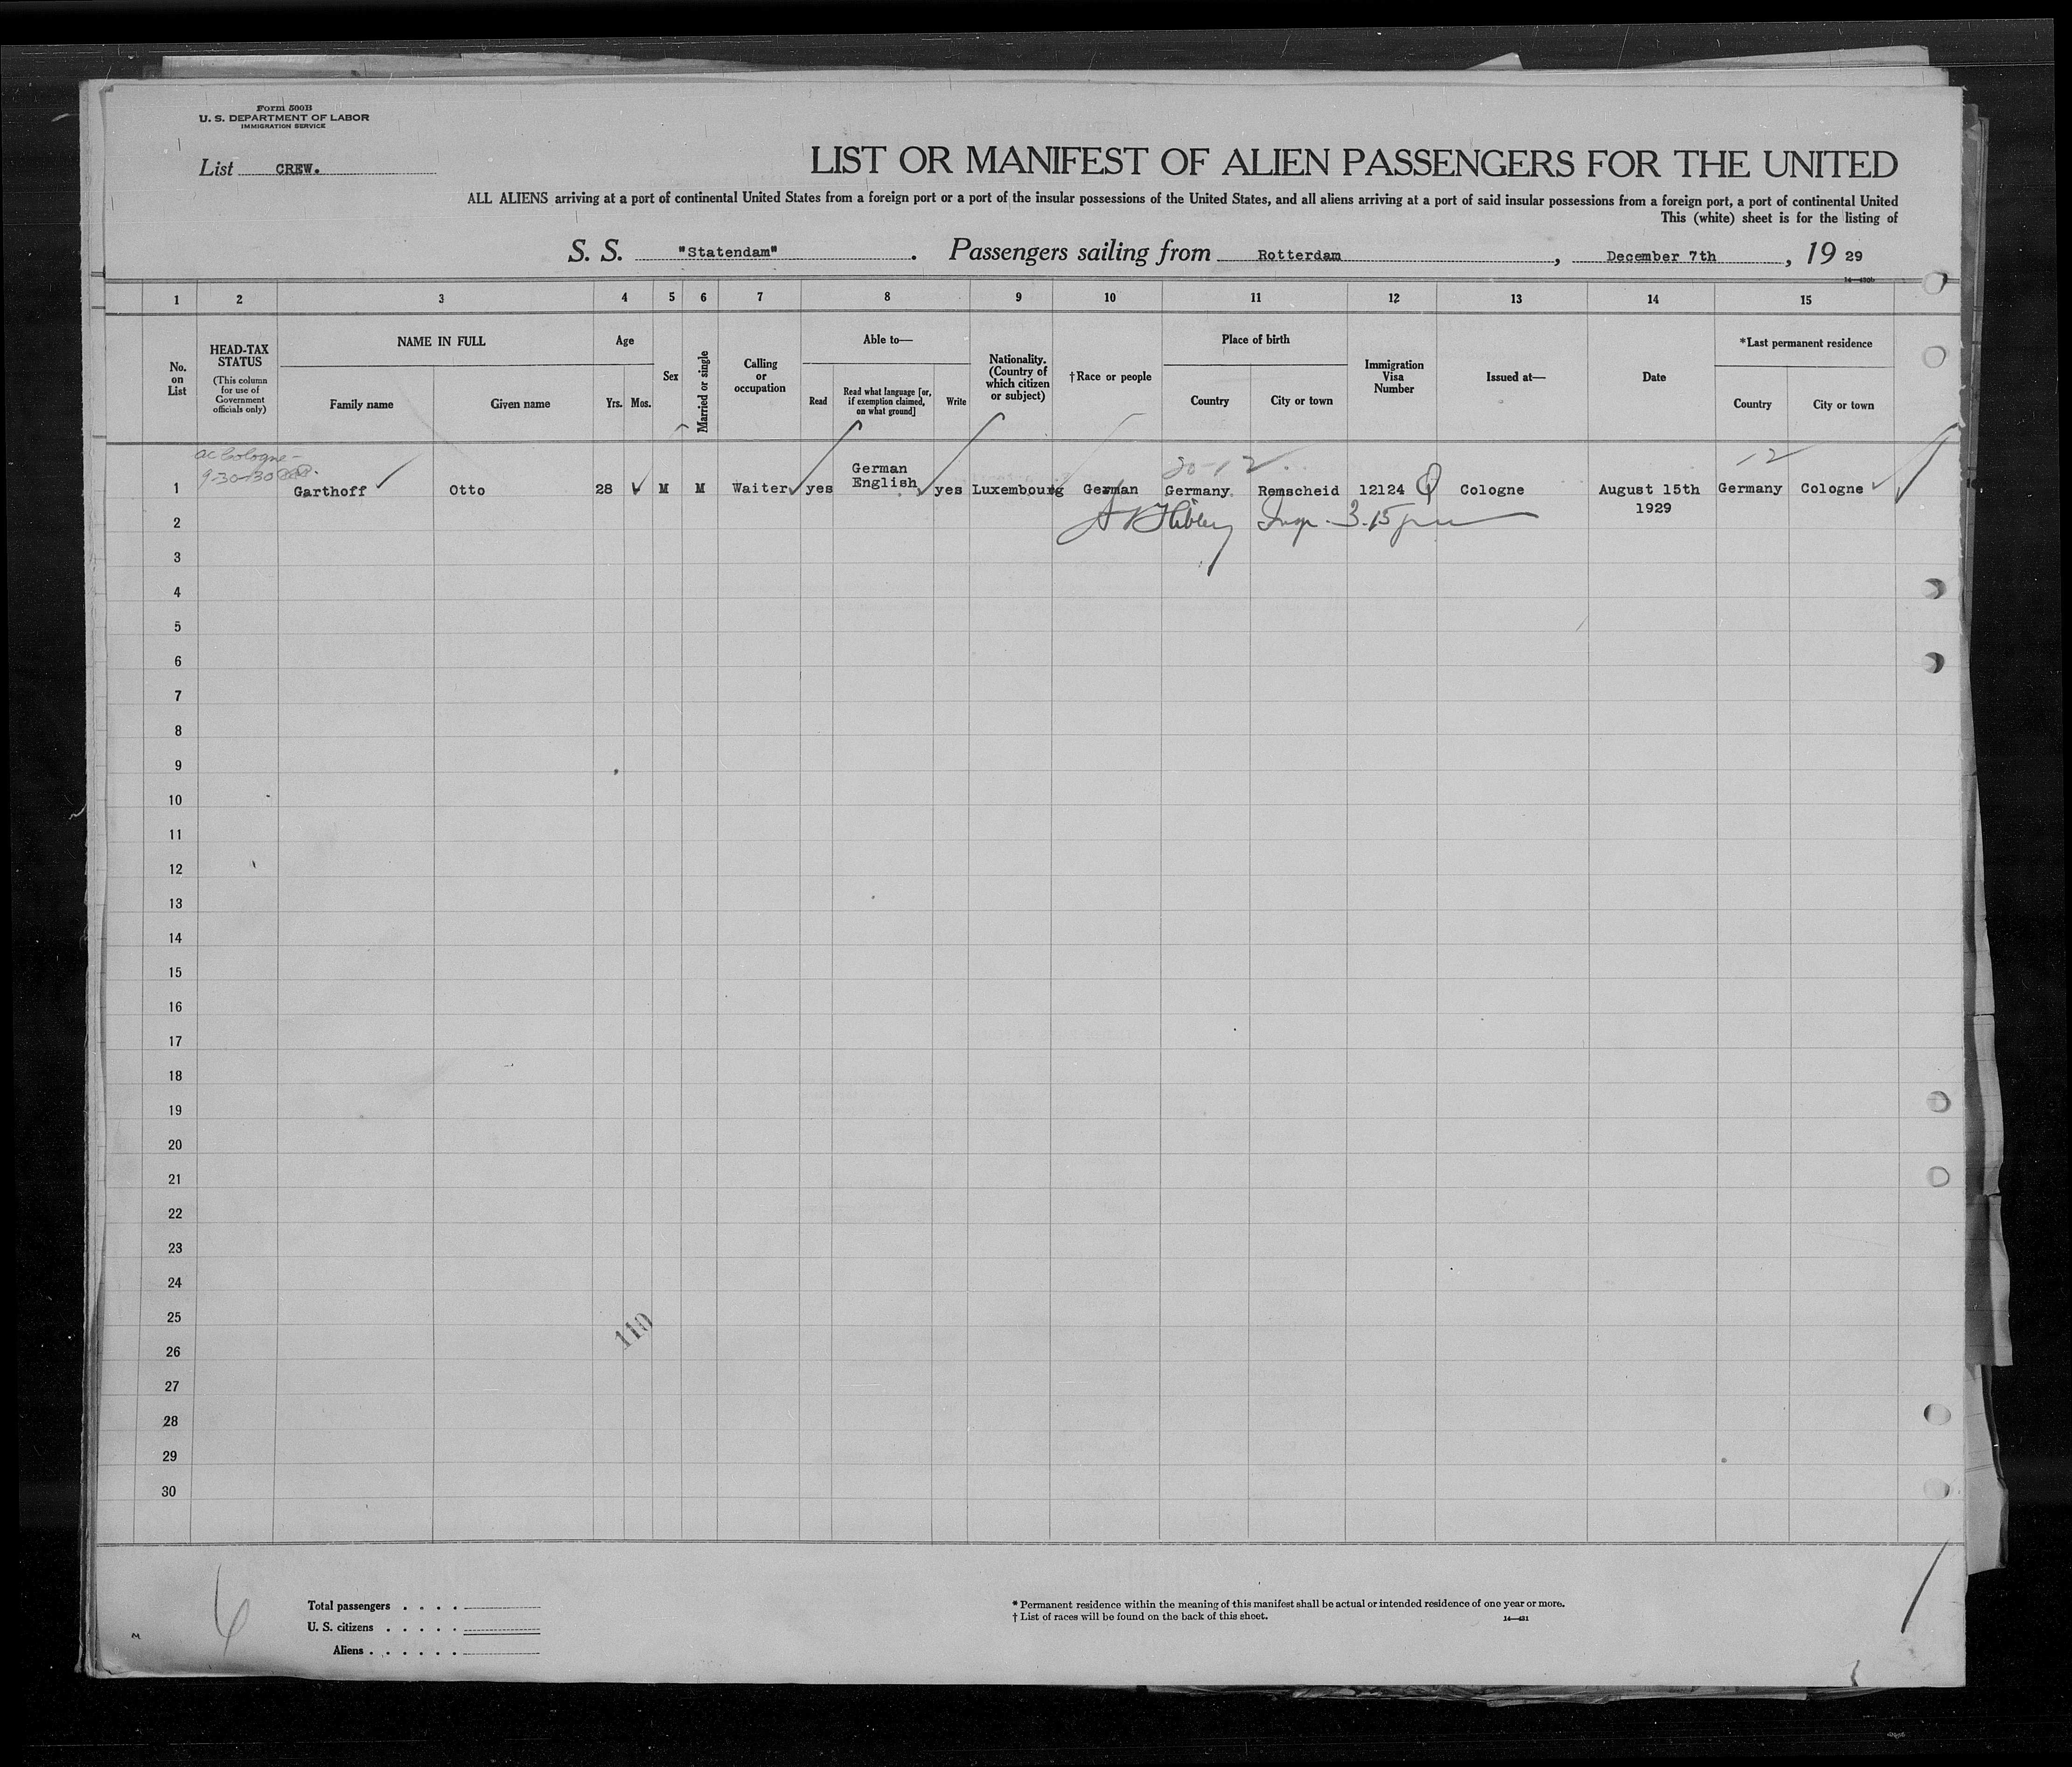 Form 500B
U. S. DEPARTMENT OF LABOR
IMMIGRATION SERVICE
List CREW.
LIST OR MANIFEST OF ALIEN PASSENGERS FOR THE UNITED
ALL ALIENS arriving at a port of continental United States from a foreign port or a port of the insular possessions of the United States, and all aliens arriving at a port of said insular possessions from a foreign port, a port of continental United
This (white) sheet is for the listing of
S. S. "Statendam". Passengers sailing from Rotterdam, December 7th, 19 29
1 2 3 4 5 6 7 8 9 10 11 12 13 14 15
No. on List
HEAD-TAX STATUS
(This column for use of Government officials only)
NAME IN FULL
Family name Given name
Age
Yrs. Mos.
Sex
Married or single
Calling or occupation
Able to—
Read
Read what language [or, if exemption claimed, on what ground]
Write
Nationality. (Country of which citizen or subject)
†Race or people
Place of birth
Country City or town
Immigration Visa Number
Issued at—
Date
*Last permanent residence
Country City or town
Cologne-
9-30-30
20-12
12
1 Garthoff Otto 28 M M Waiter yes German English yes Luxembourg German Germany Remscheid 12124 Q Cologne August 15th 1929 Germany Cologne
Insp. 3.15 pm
2
3
4
5
6
7
8
9
10
11
12
13
14
15
16
17
18
19
20
21
22
23
24
25
110
26
27
28
29
30
6
Total passengers . . . .
U. S. citizens . . . . .
Aliens . . . . . .
* Permanent residence within the meaning of this manifest shall be actual or intended residence of one year or more.
† List of races will be found on the back of this sheet.
14—431